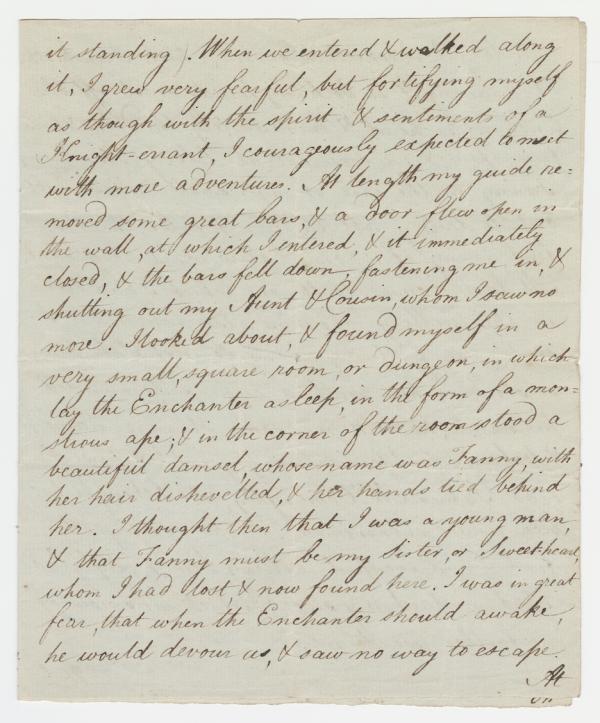 it standing). When we entered & walked along
it, I grew very fearful, but fortifying myself
as though with the spirit & sentiments of a
Knight-errant, I courageously expected to meet
with more adventures. At length my guide re=
moved some great bars, & a door flew open in
the wall, at which I entered, & it immediately
closed, & the bars fell down, fastening me in, &
shutting out my Aunt & Cousin, whom I saw no
more. I looked about, & found myself in a
very small, square room, or dungeon, in which
lay the Enchanter asleep, in the form of a mon=
strous ape; & in the corner of the room stood a
beautiful damsel, whose name was Fanny, with
her hair dishevelled, & her hands tied behind
her. I thought then that I was a young man,
& that Fanny must be my Sister, or Sweet-heart,
whom I had lost, & now found here. I was in great
fear, that when the Enchanter should awake,
he would devour us, & saw no way to escape.
At